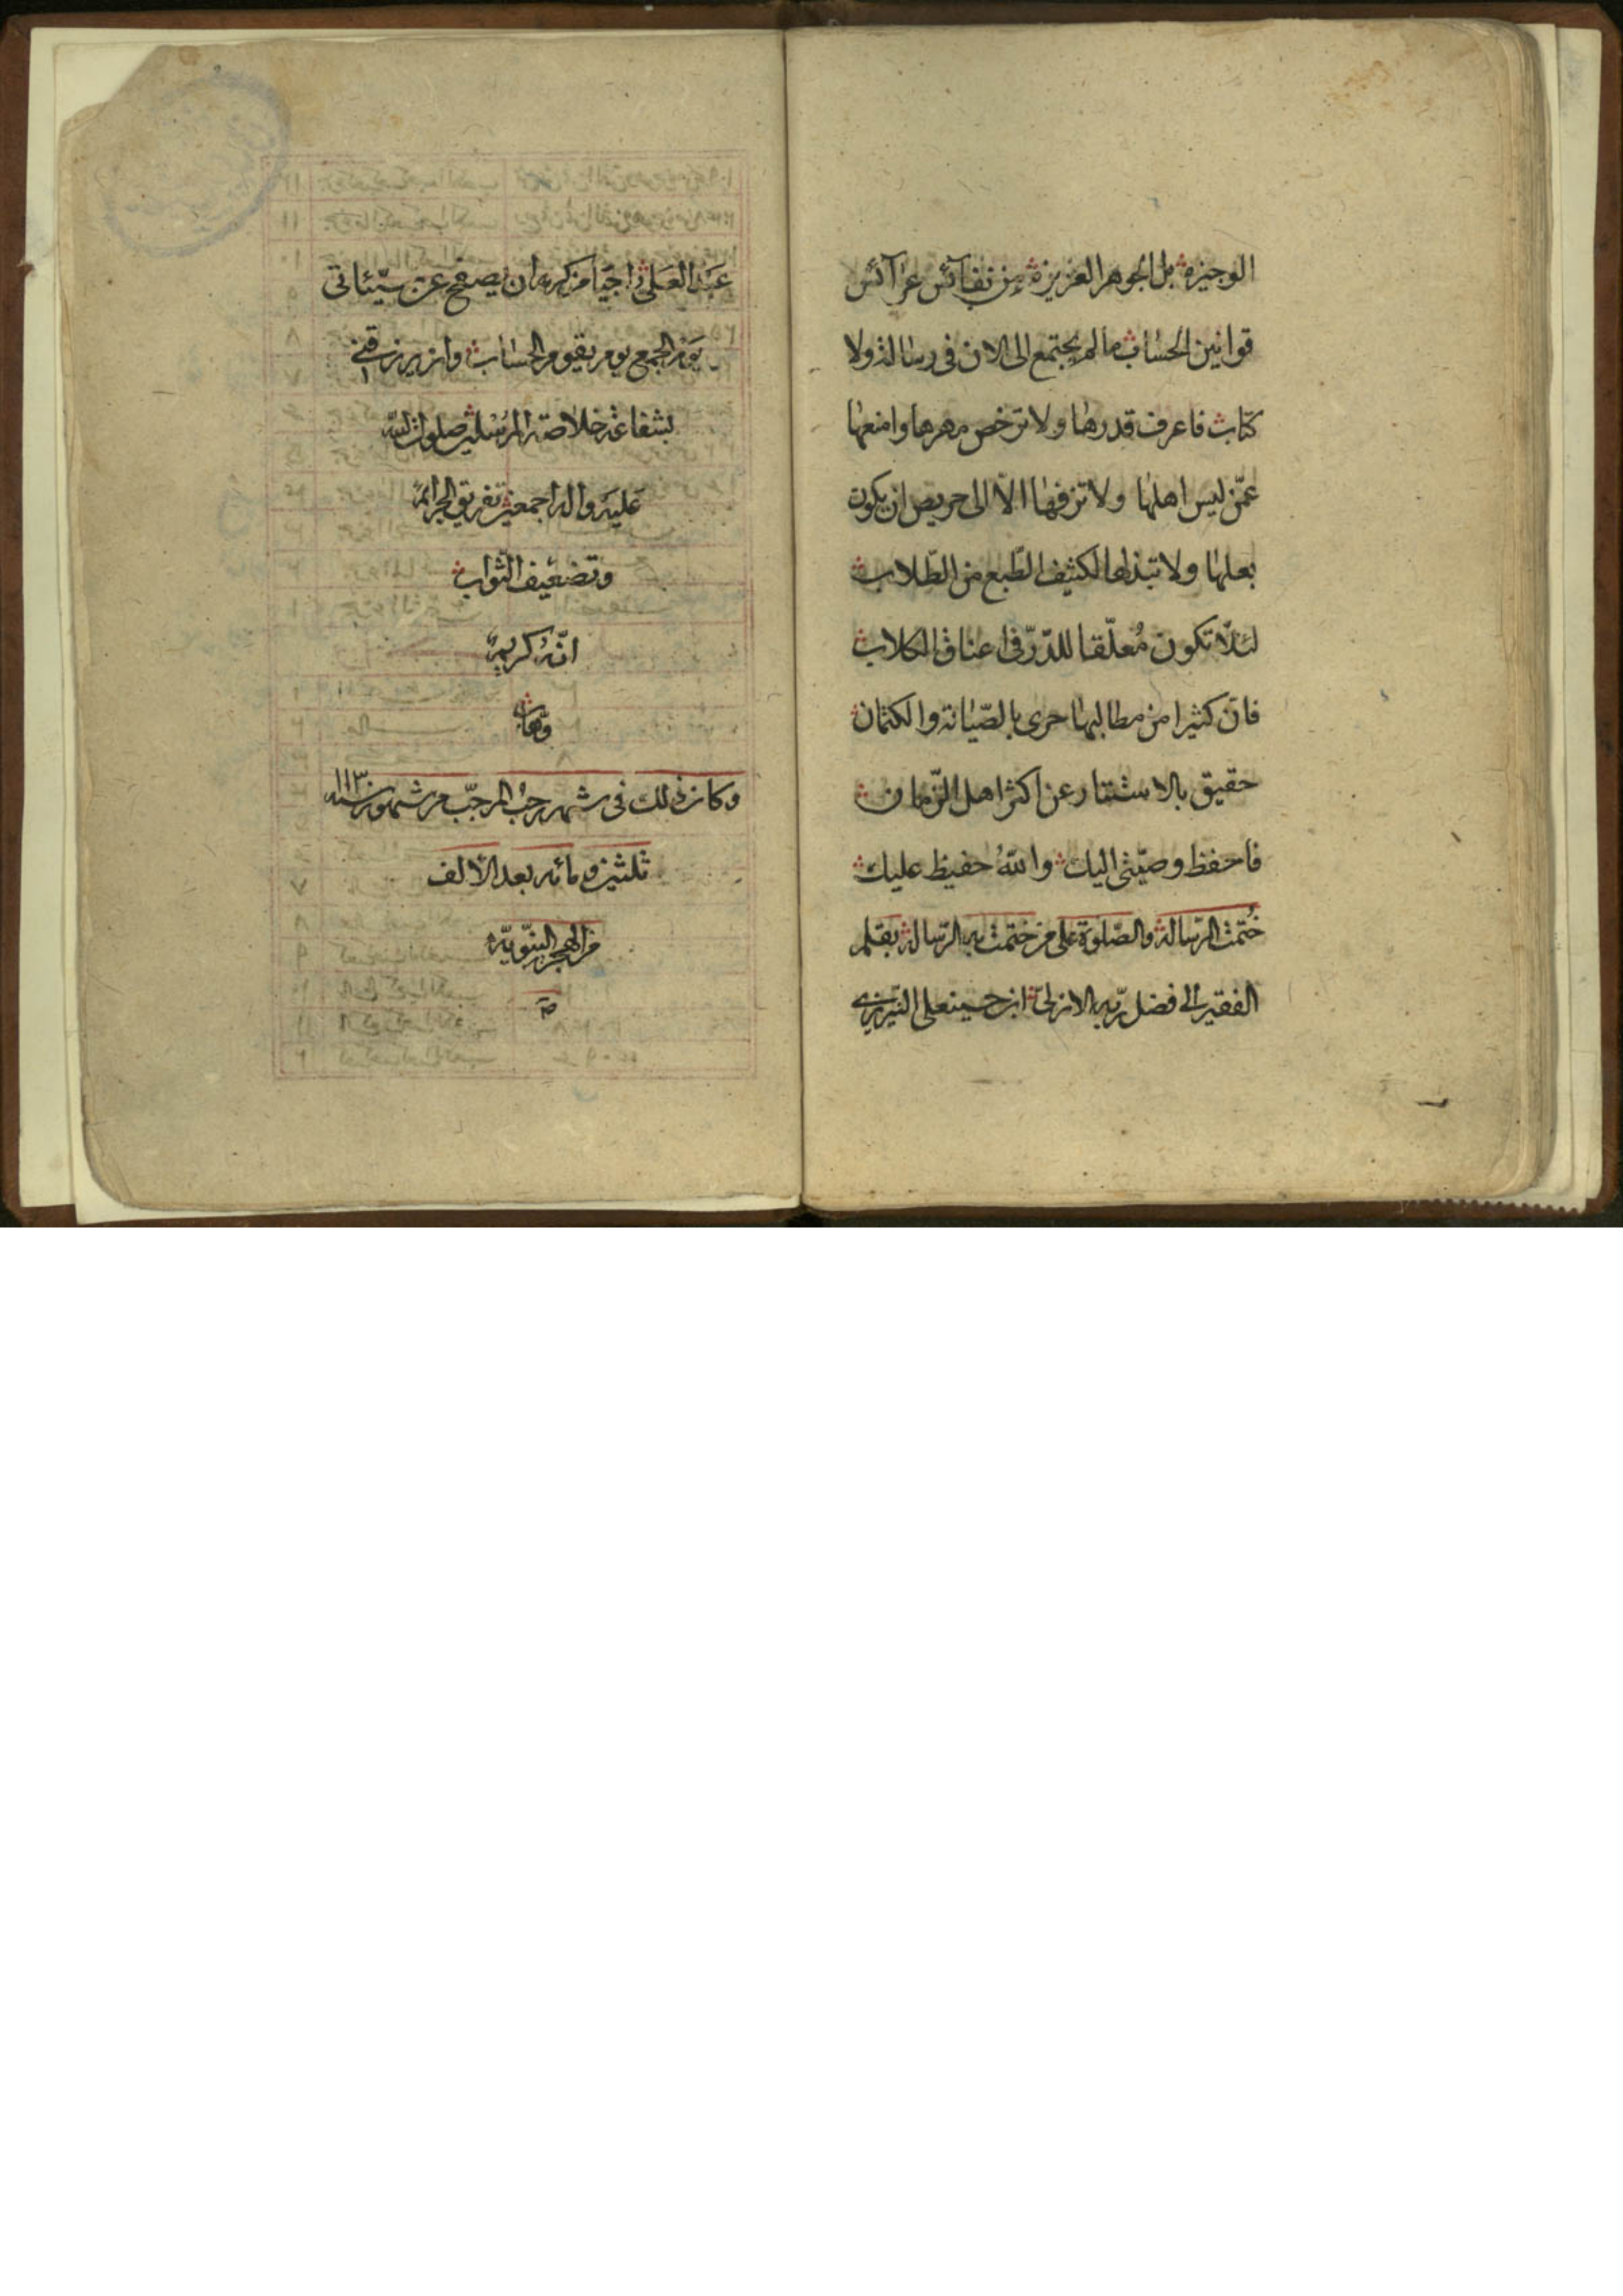 الوجيزة بل الجوهر العزيزة من نفآئس عرآئس
قوانين الحساب ما لم يجتمع الى الان فى رسالة ولا
كتاب فاعرف قدرها ولا ترخص مهرها وامنعها
عمّن ليس اهلها ولا تزفها الّا الى حريص ان يكون
بعلها ولا تبذلها لكثيف الطّبع من الطّلاب
لئلّا تكون مُعلّقا للدّرّ فى اعناق الكلاب
فانّ كثيرا من مطالبها حرى بالصّيانة والكتمان
حقيق بالاستتار عن اكثر اهل الزّمان
فاحفظ وصيّتى اليك واللهُ حفيظ عليك
خُتمت الرّسالة والصّلوة على من ختمت به الرّسالة بقلم
الفقير الى فضل ربّه الازلى ابن حسينعلى التبريزى
عبد العلى راجيا من كرمه ان يصفح عن سيّئاتى
يوم الجمع يوم يقوم الحساب وان يرزقنى
بشفاعة خلاصة المرسلين صلوات الله
عليه واله اجمعين تفريق الجرائم
وتضعيف الثّواب
انّهُ كريمٌ
وهّاب
وكان ذلك فى شهر رجب المرجّب من شهور سنه ١١٣٠
ثلثين ومائه بعد الألف
من الهجرة النبّويّه